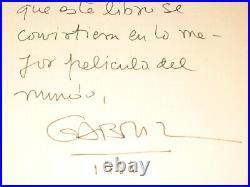 que este libro se
convirtiera en lo me-
jor película del
mundo,
vch.de